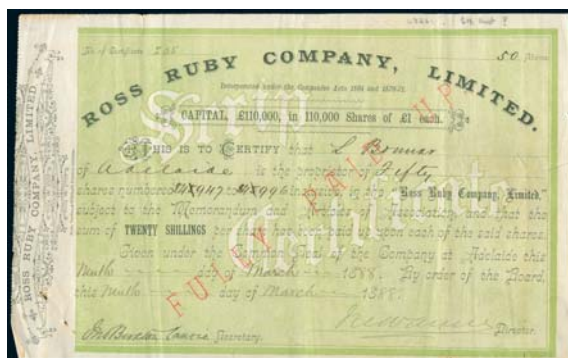 No. of Certificate
50 Shares
ROSS RUBY COMPANY, LIMITED.
Incorporated under the Companies Acts 1864 and 1870-71.
CAPITAL, £110,000, in 110,000 Shares of £1 each.
Scrip
Certificate
THIS IS TO CERTIFY that L Bonnar
of Adelaide is the proprietor of Fifty
shares numbered inclusive, in the "Ross Ruby Company, Limited,"
subject to the Memorandum and Articles of Association and that the
sum of TWENTY SHILLINGS per share has been paid upon each of the said shares.
Given under the Common Seal of the Company at Adelaide this
Ninth day of March 1888. By order of the Board,
this Ninth day of March 1888.
Secretary.
Director.
FULLY PAID UP
ROSS RUBY COMPANY, LIMITED